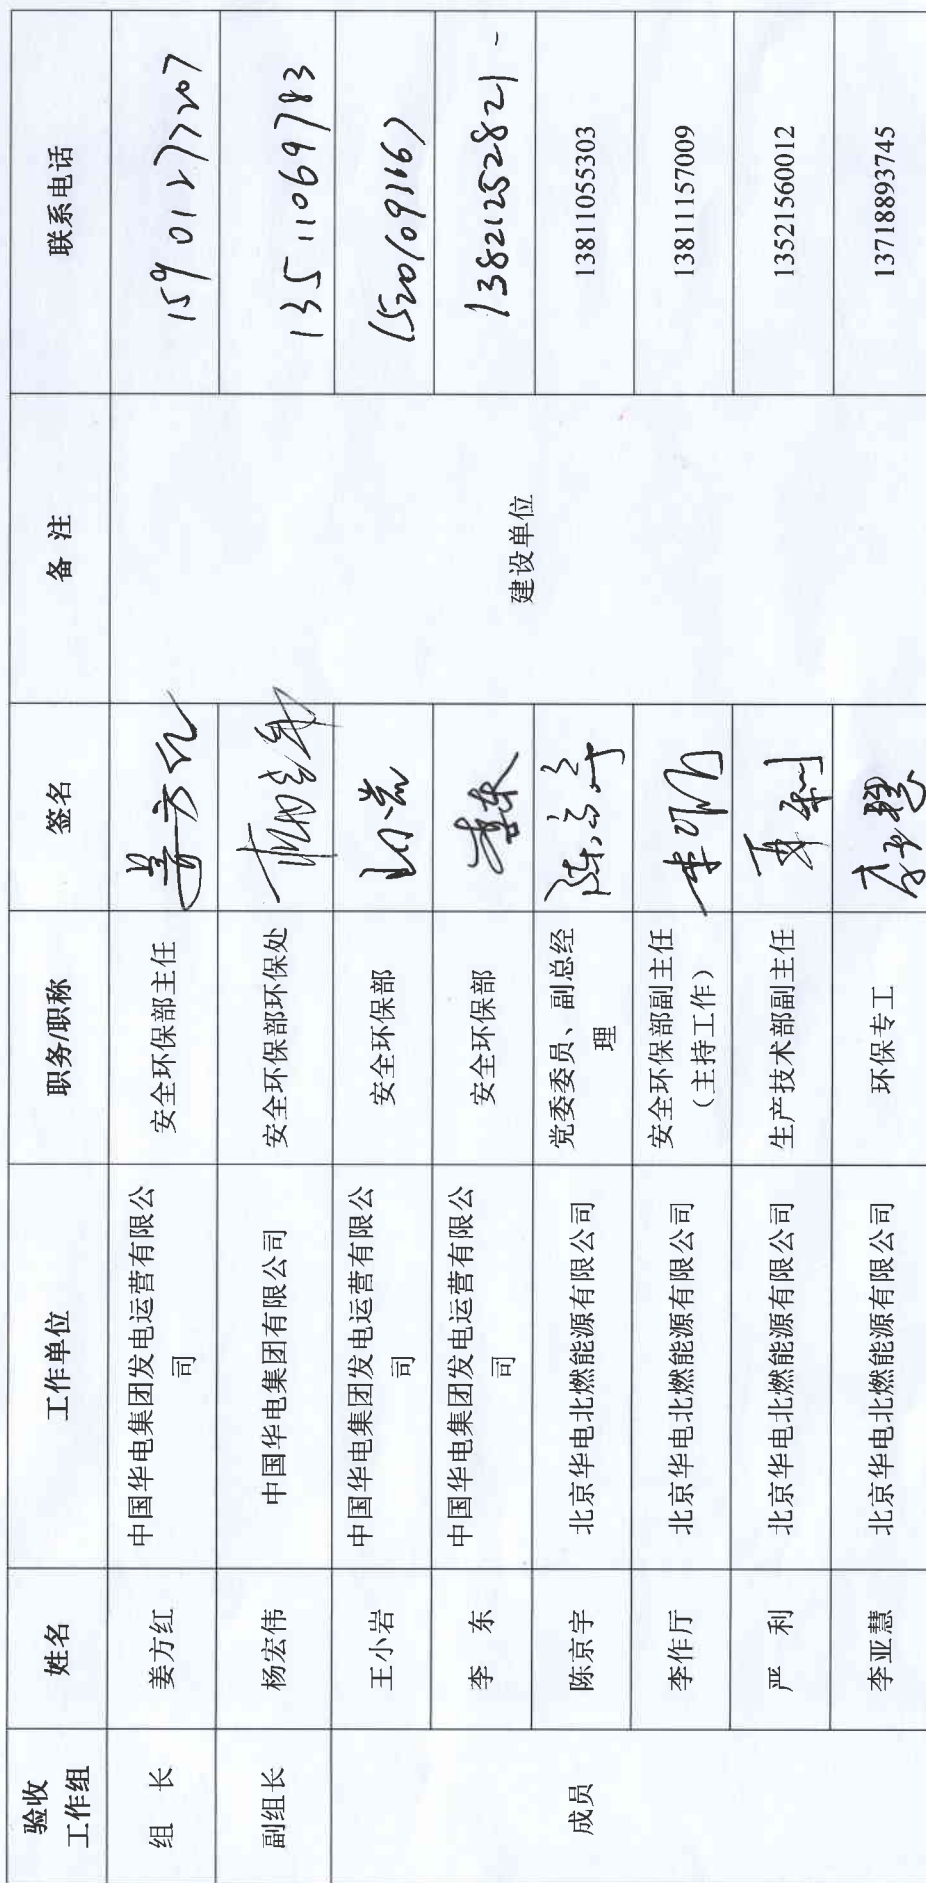 验收
工作组 姓名 工作单位 职务/职称 签名 备 注 联系电话
组 长 姜方红 中国华电集团发电运营有限公
司 安全环保部主任 姜方红 15901277207
副组长 杨宏伟 中国华电集团有限公司 安全环保部环保处 13511069783
成员 王小岩 中国华电集团发电运营有限公
司 安全环保部
李 东 中国华电集团发电运营有限公
司 安全环保部 李东 13821252821
陈京宇 北京华电北燃能源有限公司 党委委员、副总经
理 陈京宇 13811055303
李作厅 北京华电北燃能源有限公司 安全环保部副主任
（主持工作） 13811157009
严 利 北京华电北燃能源有限公司 生产技术部副主任 严利 13521560012
李亚慧 北京华电北燃能源有限公司 环保专工 李亚慧 13718893745
建设单位